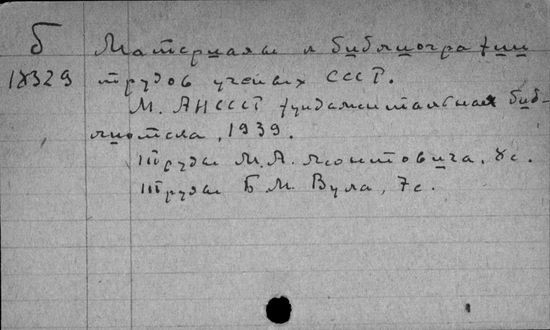 Б Материалы к библиографии
18329 трудов ученых СССР.
М. АН СССР фундаментальная биб-
лиотека, 1939.
Труды М.А. Леонтовича, 8с.
Труды Б.М. Вула, 7с.